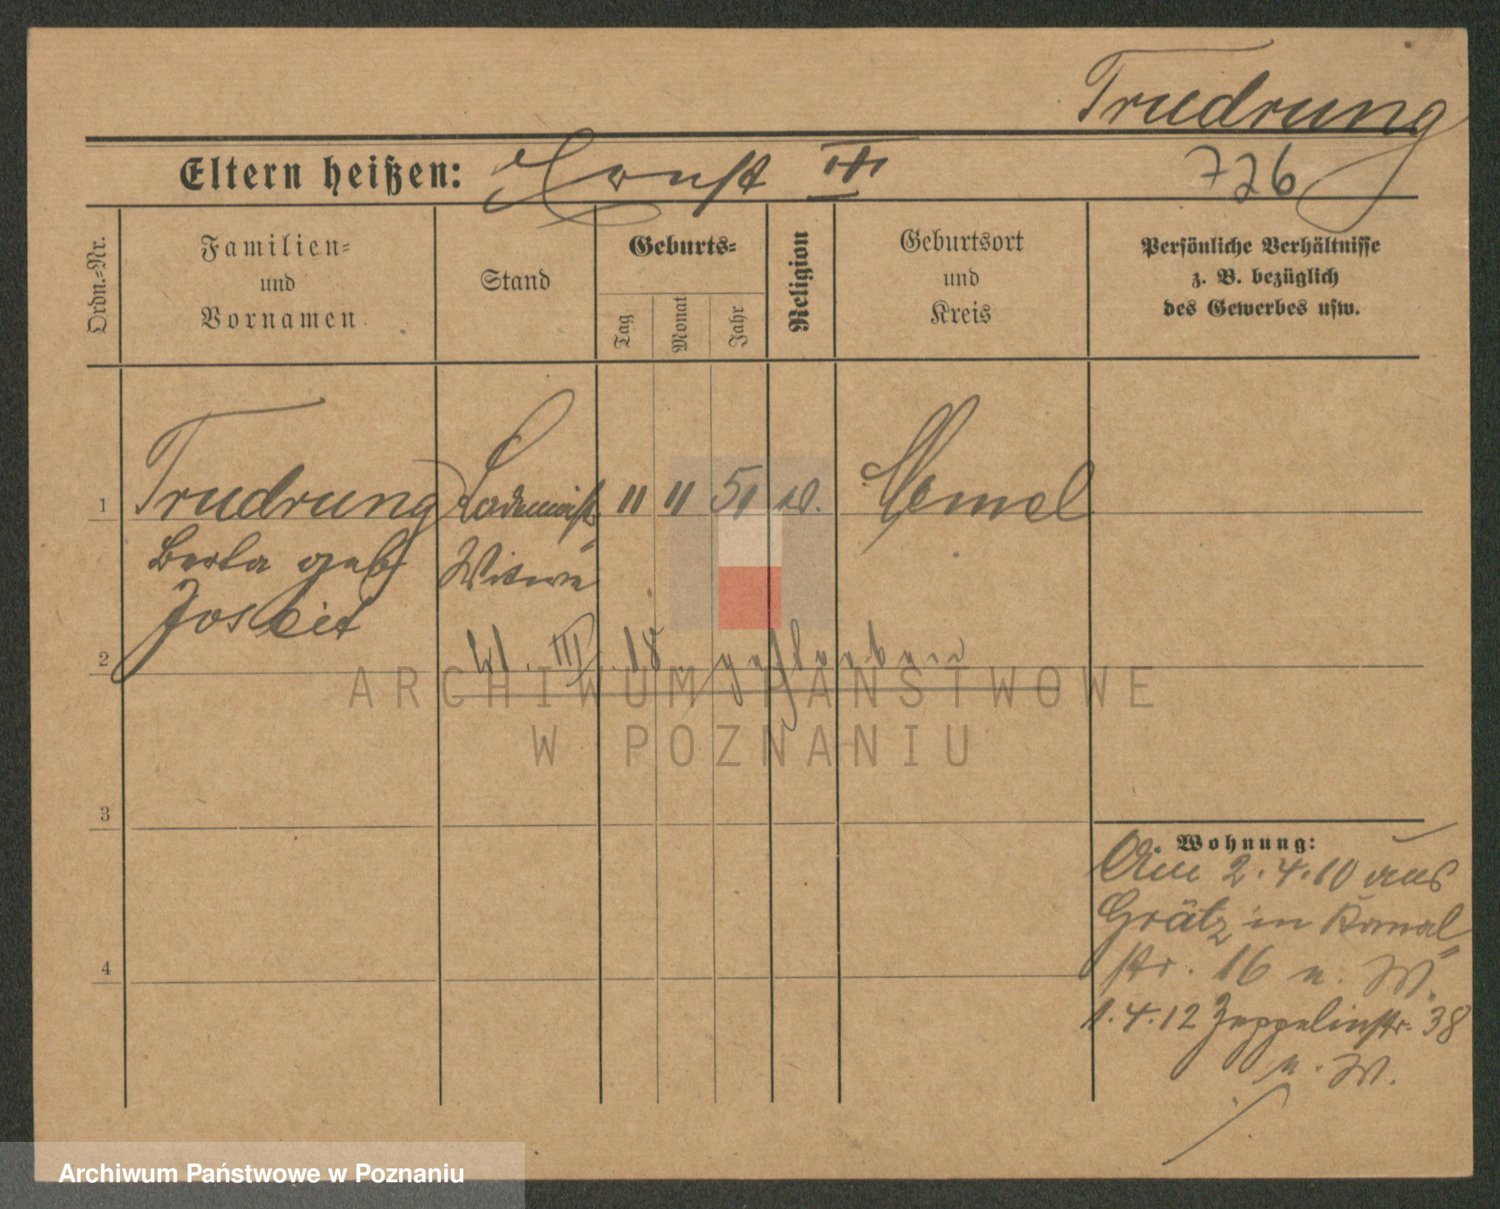 Trudrung
Eltern heißen: Ernst III 726
Ordn.=Nr.
Familien=
und
Vornamen
Stand
Geburts=
Tag
Monat
Jahr
Religion
Geburtsort
und
Kreis
Persönliche Verhältnisse
z. B. bezüglich
des Gewerbes usw.
1 Trudrung 11 11 51 Memel
Berta geb.
Joseit
Witwe
2
III. 18. gestorben
3
4
Wohnung:
Am 2.4.10 aus
Grätz in Kanal=
str. 16 u. W.
1.4.12 Zeppelinstr. 38
u. W.
ARCHIWUM PAŃSTWOWE
W POZNANIU
Archiwum Państwowe w Poznaniu